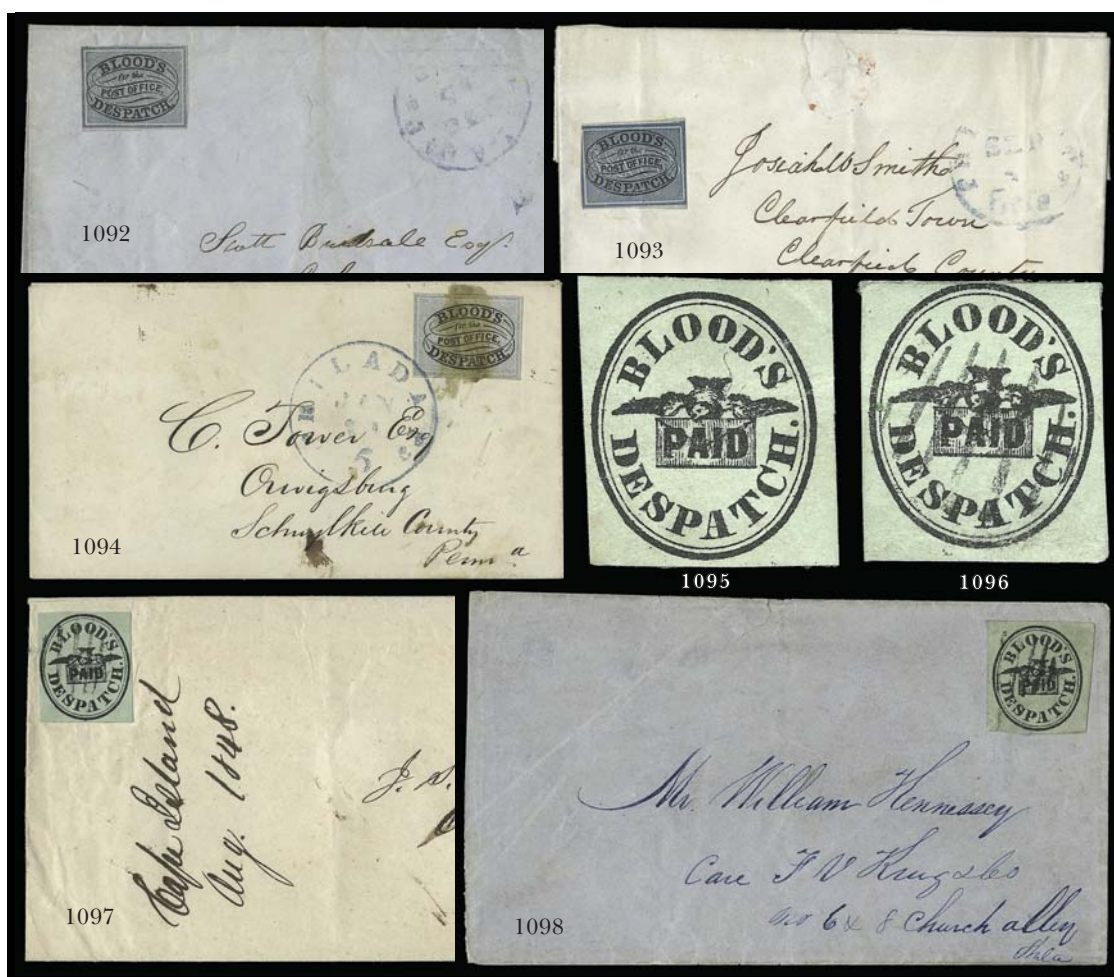 BLOOD'S
for the
POST OFFICE.
DESPATCH.
1092
Scott
Esqr.
BLOOD'S
for the
POST OFFICE.
DESPATCH.
Josiah W Smith
Clearfield Town
Clearfield County
1093
BLOOD'S
for the
POST OFFICE.
DESPATCH.
PHILADA
JAN
5
C. Tower Esq
Orwigsburg
Schuylkill County
Penna
1094
BLOOD'S
PAID
DESPATCH.
1095
BLOOD'S
PAID
DESPATCH.
1096
BLOOD'S
PAID
DESPATCH.
Cape Island
Aug. 1848.
J.
1097
BLOOD'S
PAID
DESPATCH.
Mr. William Hennessey
Care F V Krug & Co
No 6 & 8 Church alley
Phila
1098